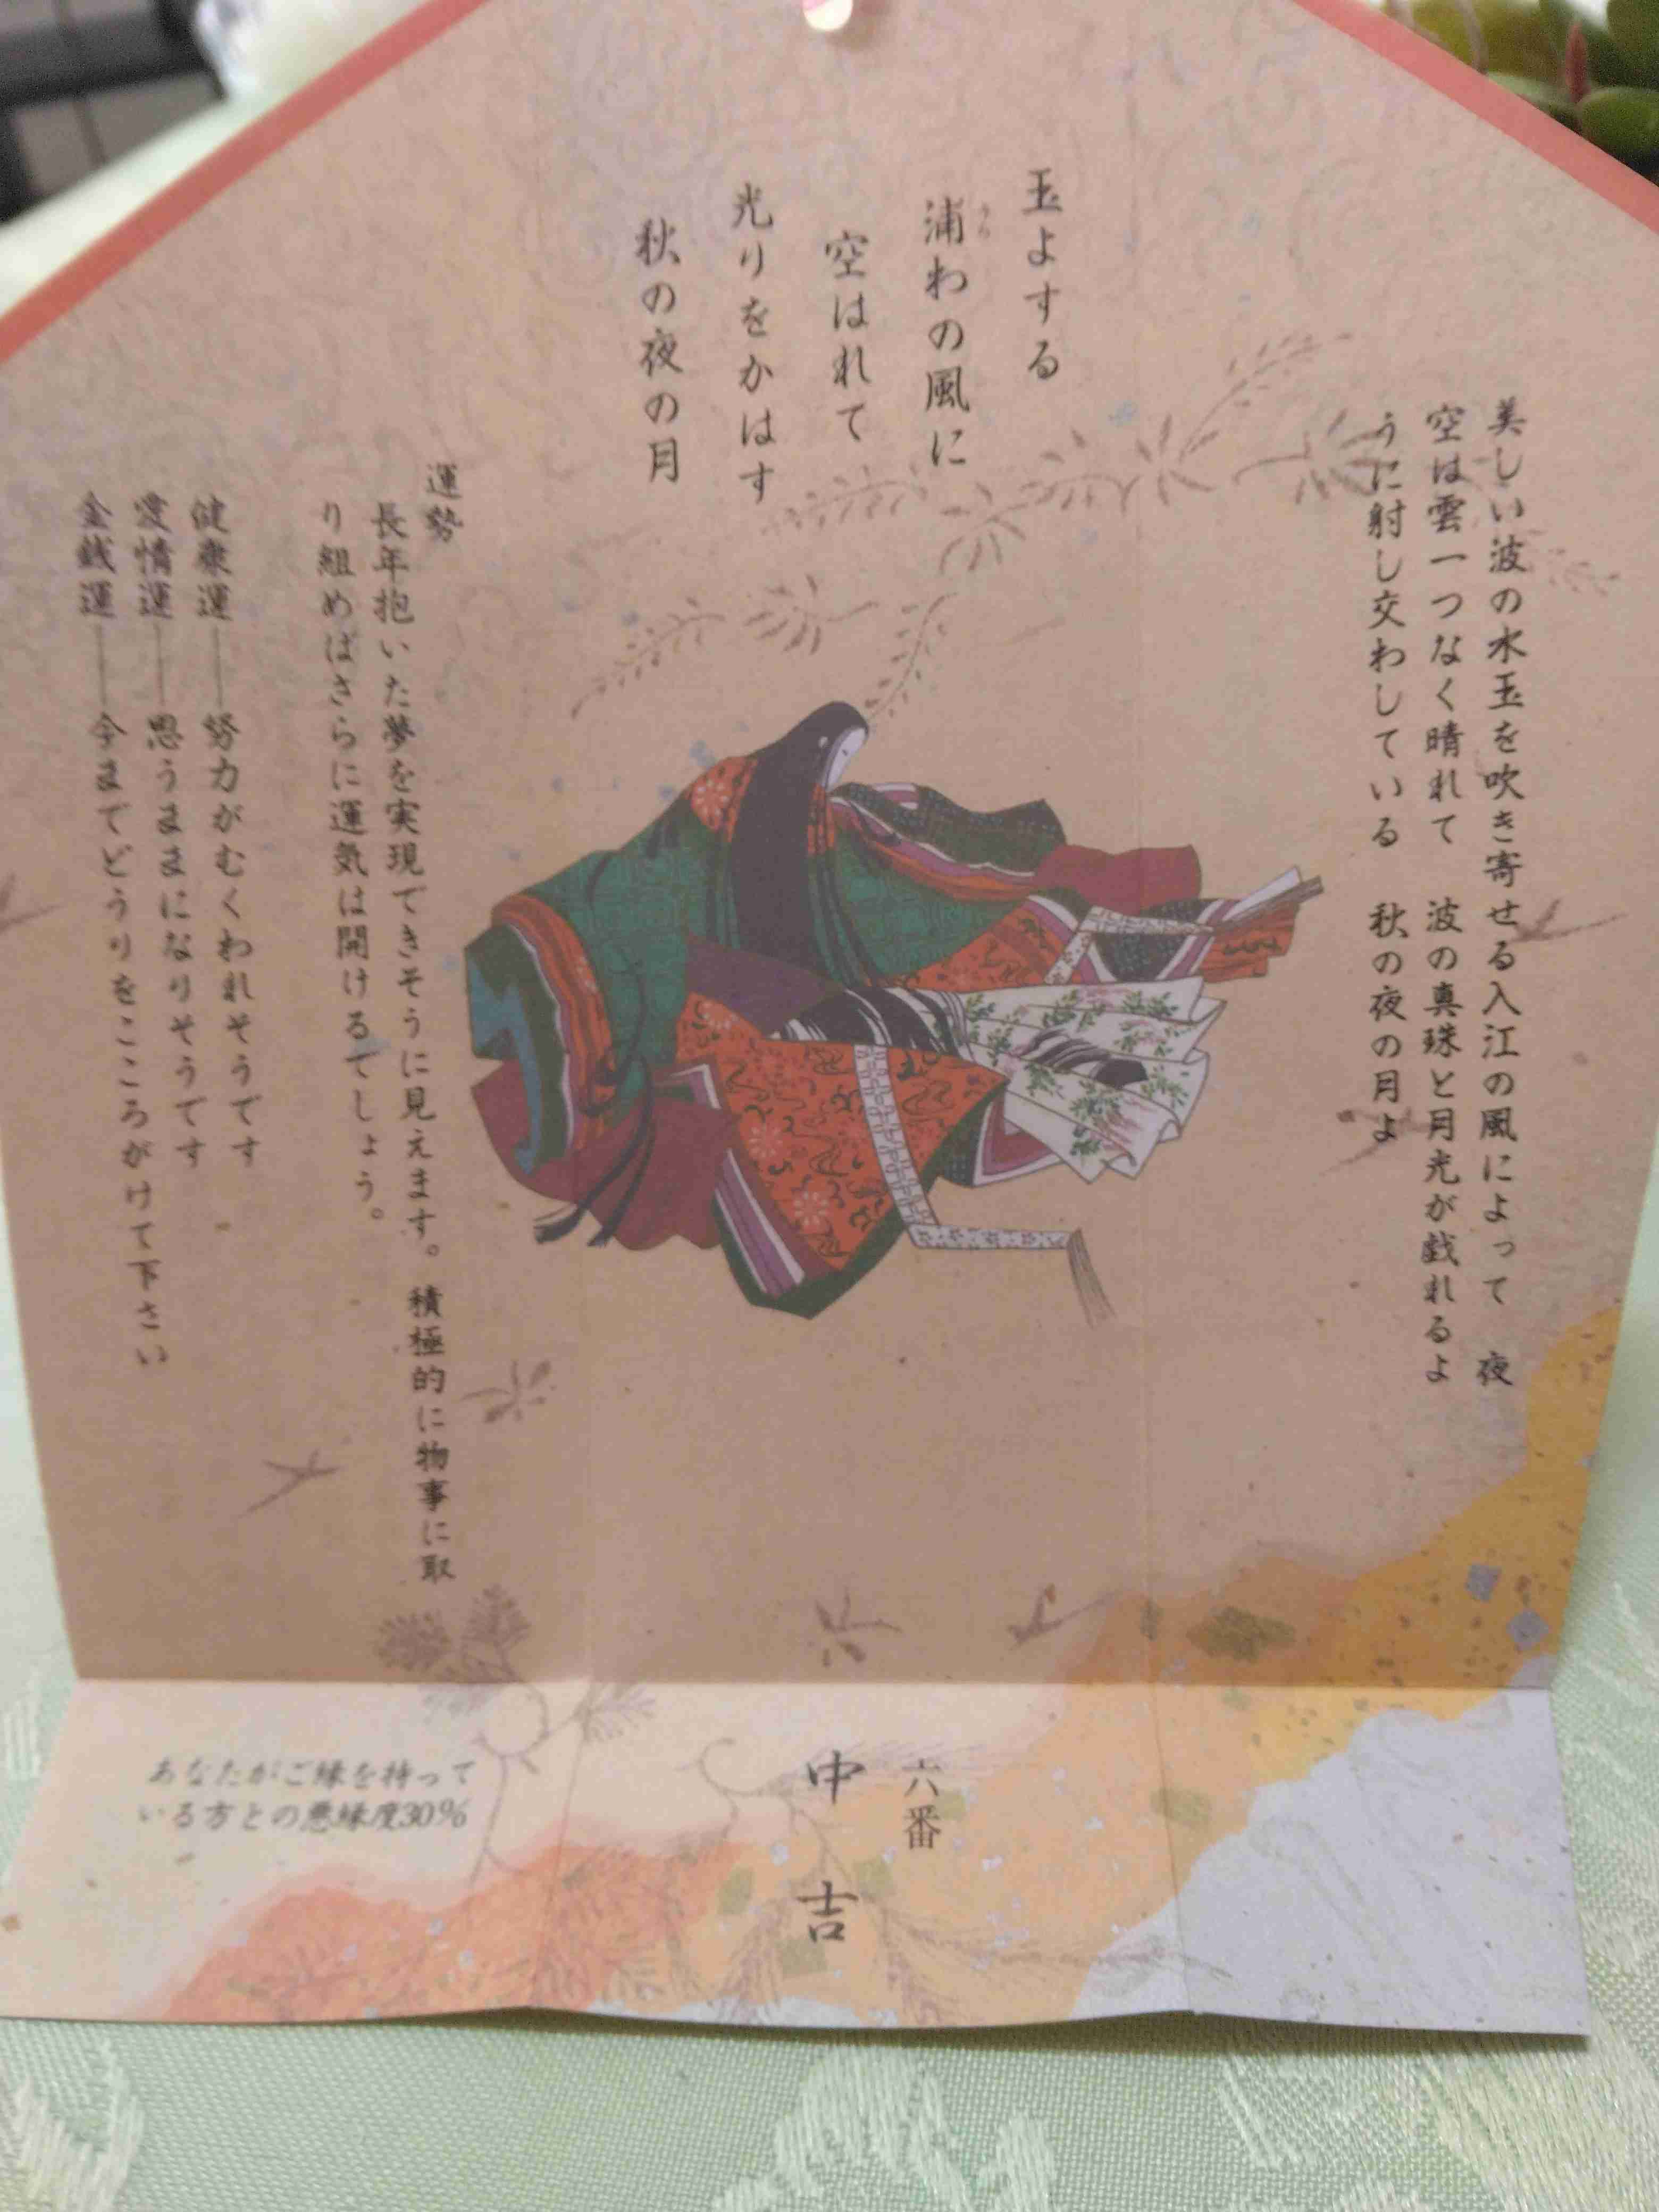 美しい波の水玉を吹き寄せる入江の風によって　夜
空は雲一つなく晴れて　波の真珠と月光が戯れるよ
うに射し交わしている　秋の夜の月よ
玉よする
浦わの風に
うら
空はれて
光りをかはす
秋の夜の月
運勢
長年抱いた夢を実現できそうに見えます。積極的に物事に取
り組めばさらに運気は開けるでしょう。
健康運――努力がむくわれそうです
愛情運――思うままになりそうです
金銭運――今までどうりをこころがけて下さい
六番
中吉
あなたがご縁を持って
いる方との悪縁度30%